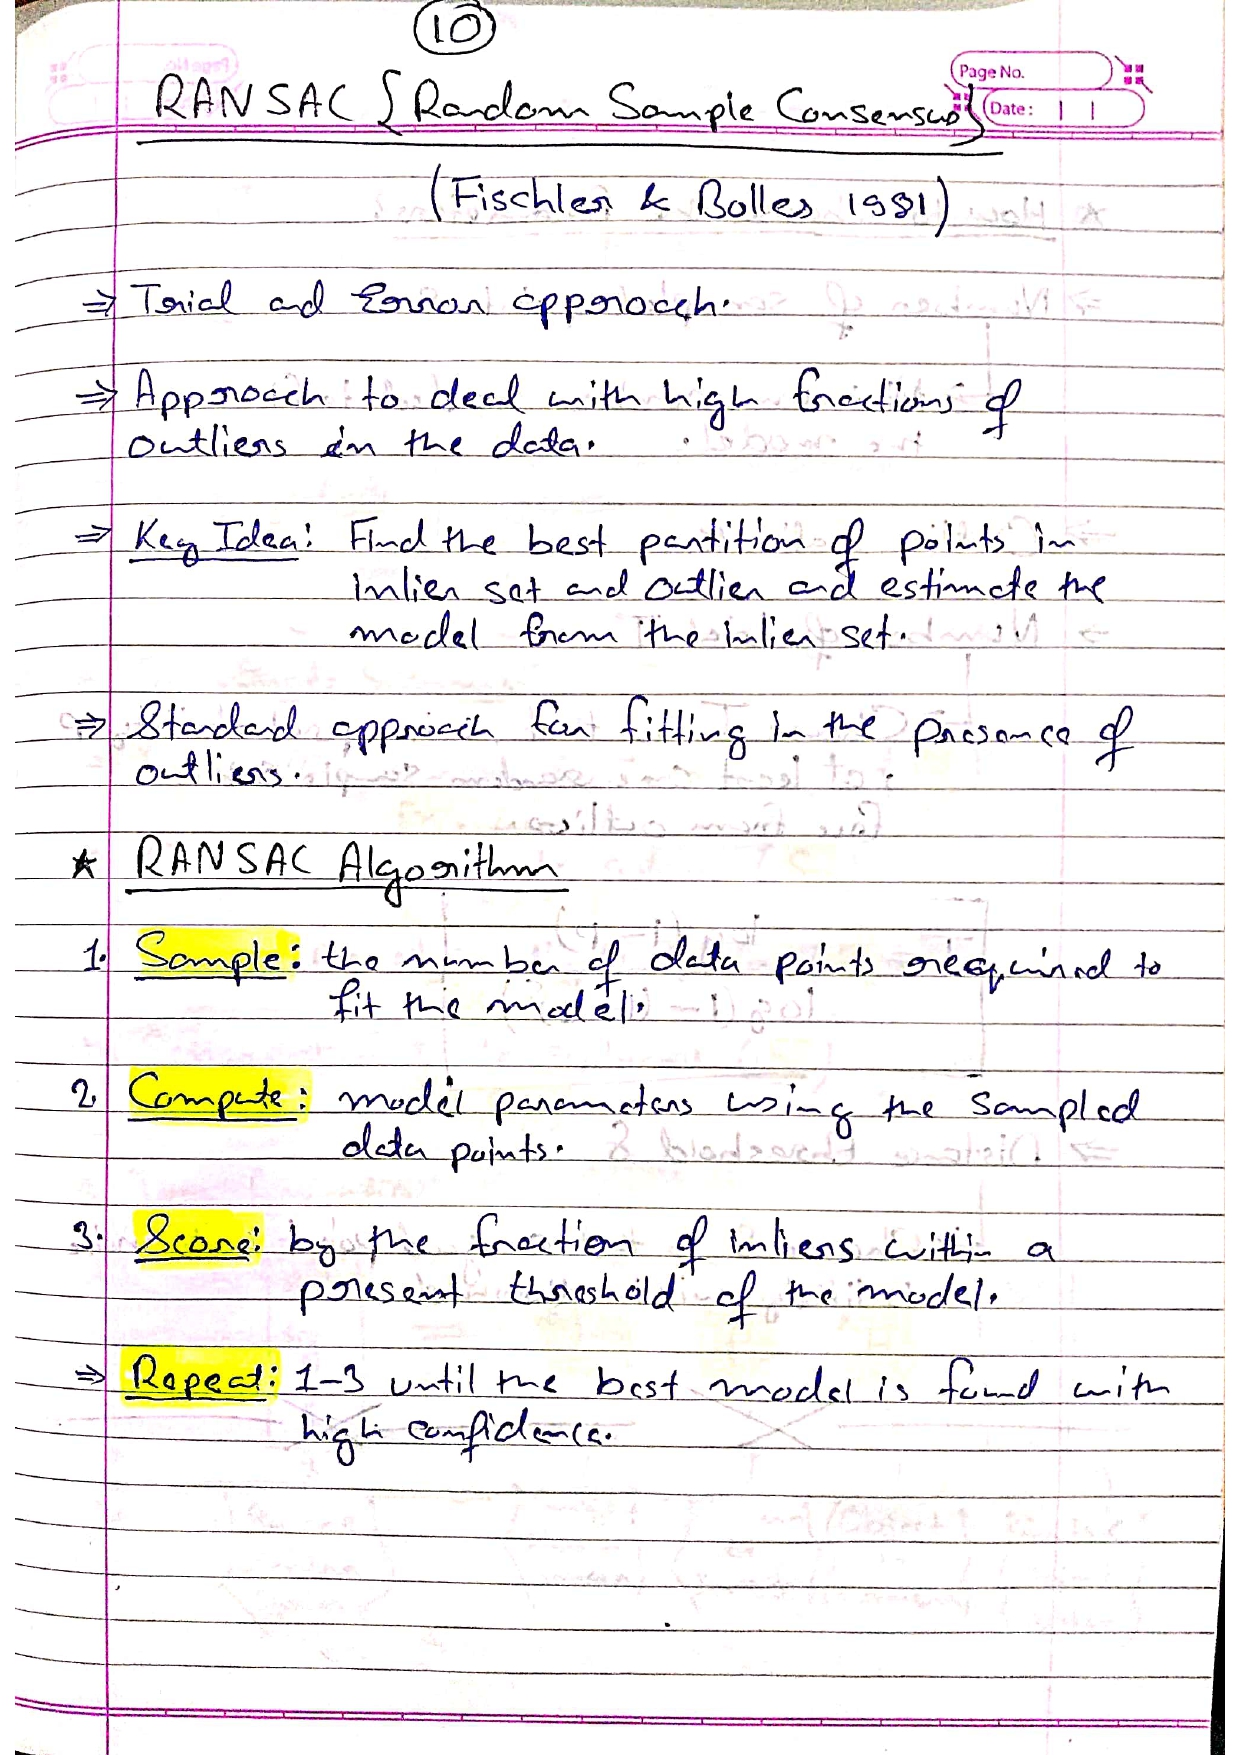 10
Page No.
Date:
RANSAC {Random Sample Consensus}
(Fischler & Bolles 1981)
⇒ Trial and Error approach.
⇒ Approach to deal with high fractions of
outliers in the data.
⇒ Key Idea: Find the best partition of points in
inlier set and outlier and estimate the
model from the inlier set.
⇒ Standard approach for fitting in the presence of
outliers.
* RANSAC Algorithm
1. Sample: the number of data points required to
fit the model.
2. Compute: model parameters using the sampled
data points.
3. Score: by the fraction of inliers within a
present threshold of the model.
⇒ Repeat: 1-3 until the best model is found with
high confidence.